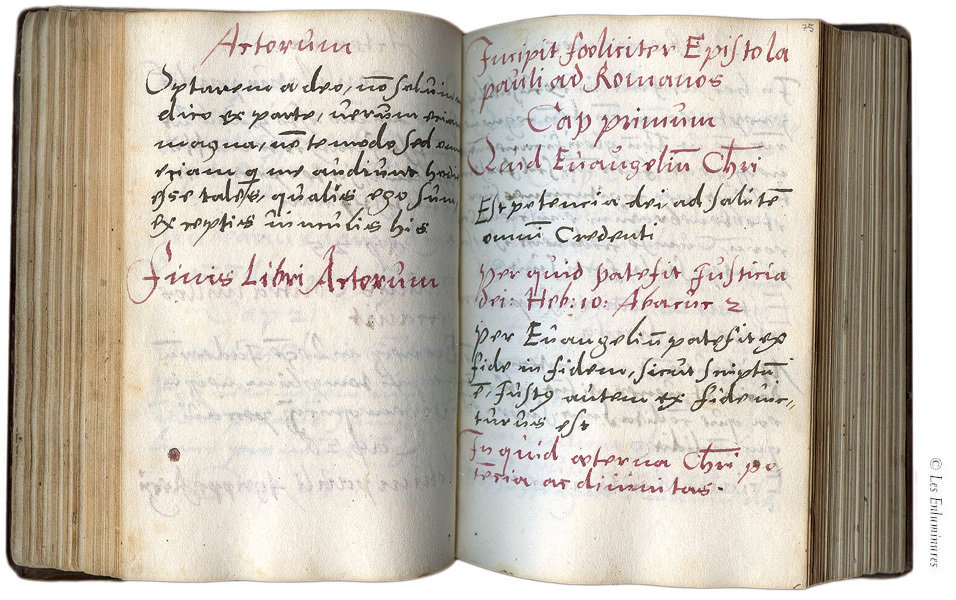 Actorum
Optarem a deo, nō solum
dico ex parte, verum etiam
magna, nē te modo sed om
etiam q me audiunt hodie
esse tales, qualis ego sum,
exceptis vinculis his
Finis Libri Actorum
75
Incipit foeliciter Epistola
pauli ad Romanos
Cap primum
Quid Evangeliū Chri
Est potencia dei ad salutē
omni Credenti
per quid patefit Justicia
dei. Heb: 10: Abacuc 2
per Evangeliū patefit ex
fide in fidem, sicut scriptū
ē, Justꝯ autem ex fide vic-
turus est
In quid æterna Chri po
tēcia ac divinitas.
© Les Enluminures